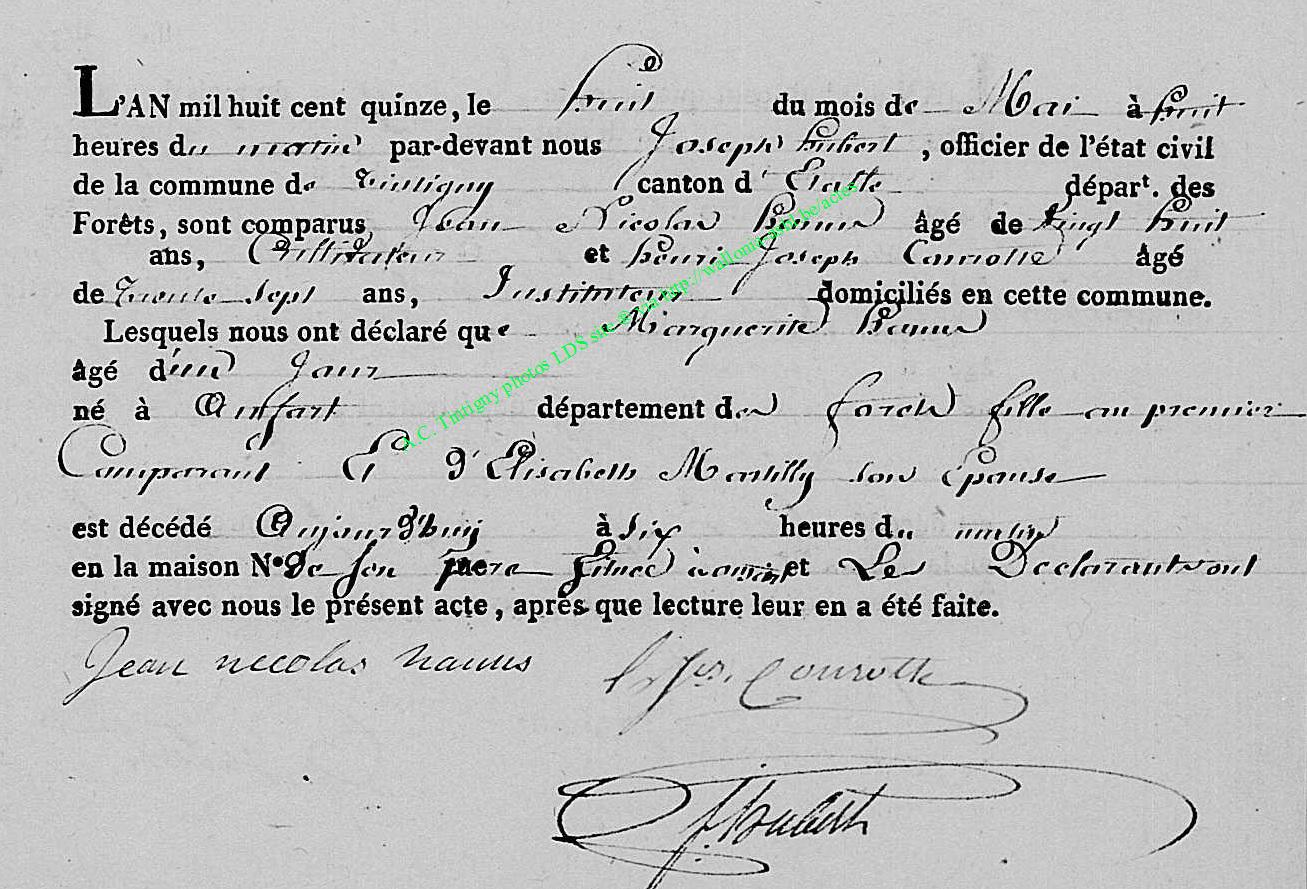 L'AN mil huit cent quinze, le huit du mois de Mai à huit
heures du matin par-devant nous Joseph hubert, officier de l'état civil
de la commune de Tintigny canton d'Etalle départ. des
Forêts, sont comparus Jean Nicolas hanus âgé de vingt huit
ans, Cultivateur et henri Joseph Courotte âgé
de trente Sept ans, Instituteur domiciliés en cette commune.
Lesquels nous ont déclaré que Marguerite hanus
âgé d'un Jour
né à Ansart département des forets fille au premier
Comparant Et d'Elisabeth son Epouse
est décédé Aujourd'huy à six heures du matin
en la maison N° De son pere Située et Les Declarants ont
signé avec nous le présent acte, après que lecture leur en a été faite.
Jean nicolas hanus
h Jph. Courotte
J hubert
A.C. Tintigny photos LDS sur http://wallonia-asbl.be/actes